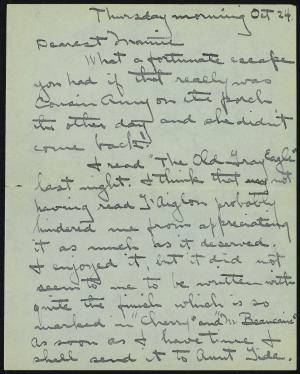 Thursday morning Oct 24
Dearest
What a fortunate escape
you had if that really was
Cousin Anny on the porch
the other day and she didn't
come back!
I read "The Old Gray Eagle"
last night. I think that my not
having read L'Aiglon probably
hindered me from appreciating
it as much as it deserved.
I enjoyed it, but it did not
seem to me to be written with
quite the finish which is so
marked in "Cherry" and "M. Beaucaire"
as soon as I have time I
shall send it to Aunt